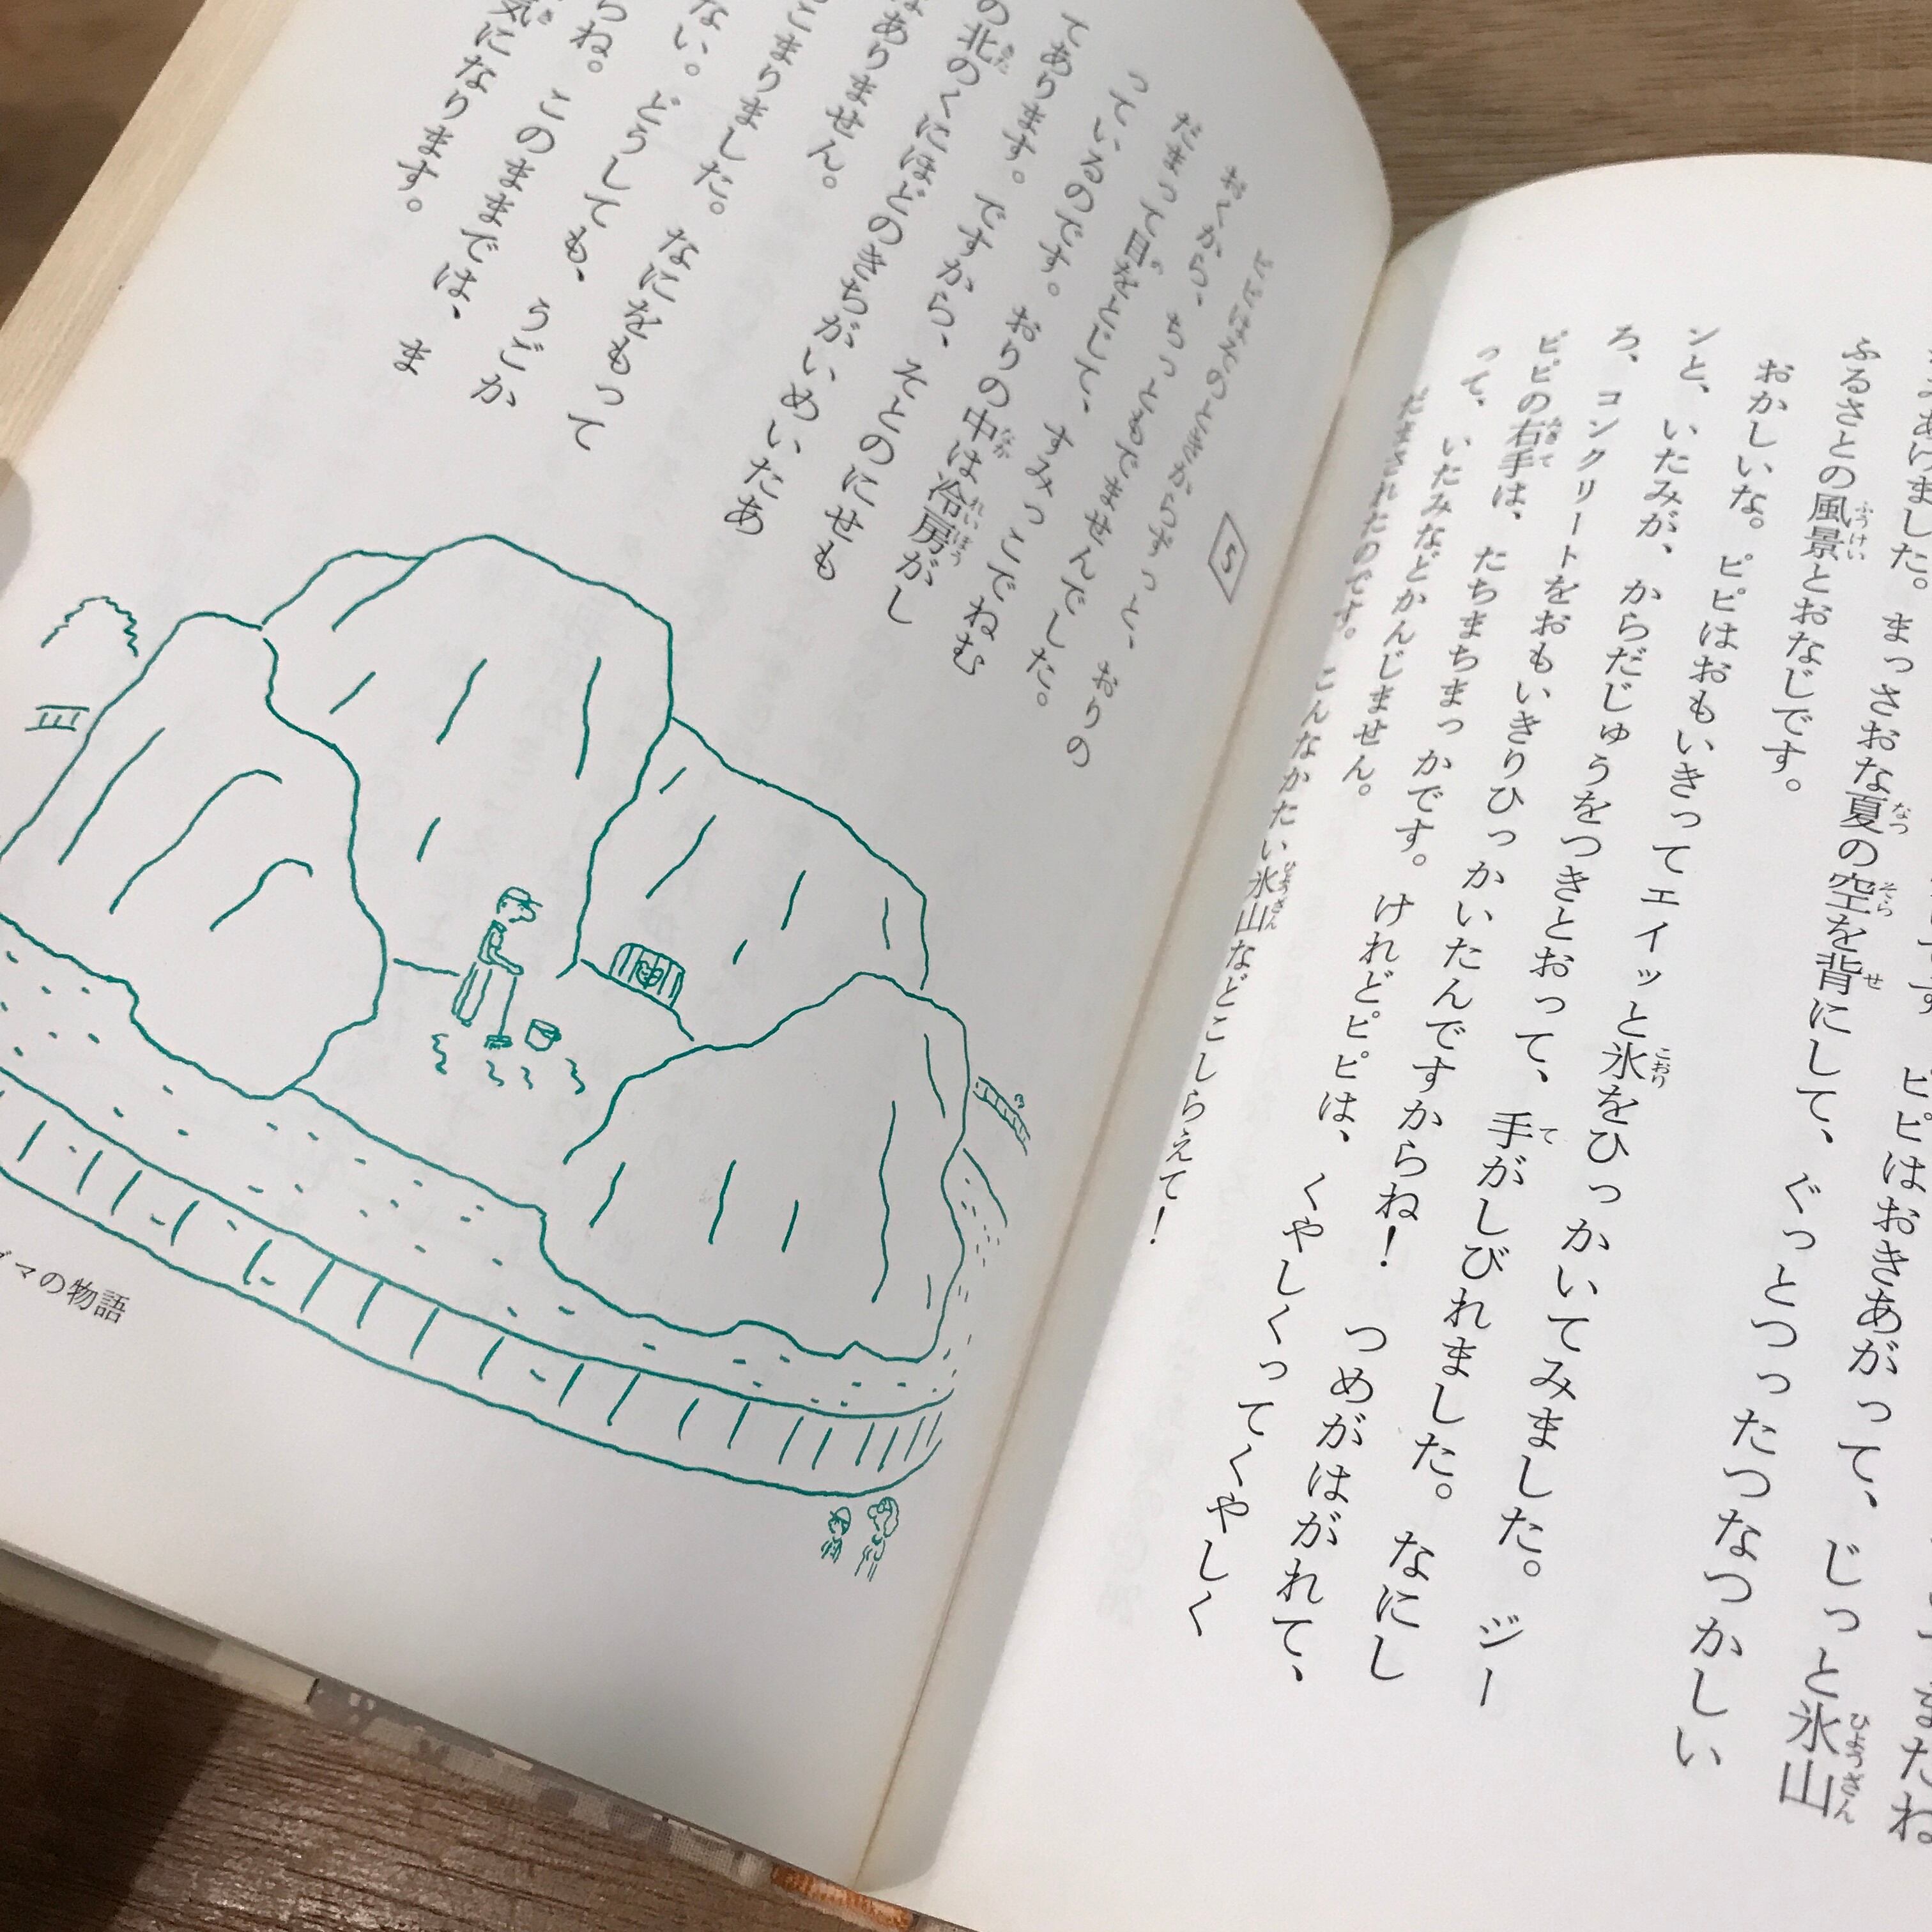 あげました。まっさおな夏の空を背にして、ぐっとつったつなつかしい
ふるさとの風景とおなじです。
おかしいな。ピピはおきあがって、じっと氷山
ンと、いたみが、からだじゅうをつきとおって、手がしびれました。なにし
ろ、コンクリートをおもいきりひっかいたんですからね！つめがはがれて、
ピピの右手は、たちまちまっかです。けれどピピは、くやしくってくやしく
って、いたみなどかんじません。
だまされたのです。こんなかたい氷山などこしらえて！
ピピはおもいきってエイッと氷をひっかいてみました。ジー
5
ピピはそのときからずっと、おりの
おくから、ちっともでませんでした。
だまって目をとじて、すみっこでねむ
っているのです。おりの中は冷房がし
てあります。ですから、そとのにせも
の北のくにほどのきちがいめいたあ
はありません。
こまりました。なにをもって
ない。どうしても、うごか
らね。このままでは、ま
気になります。
マの物語